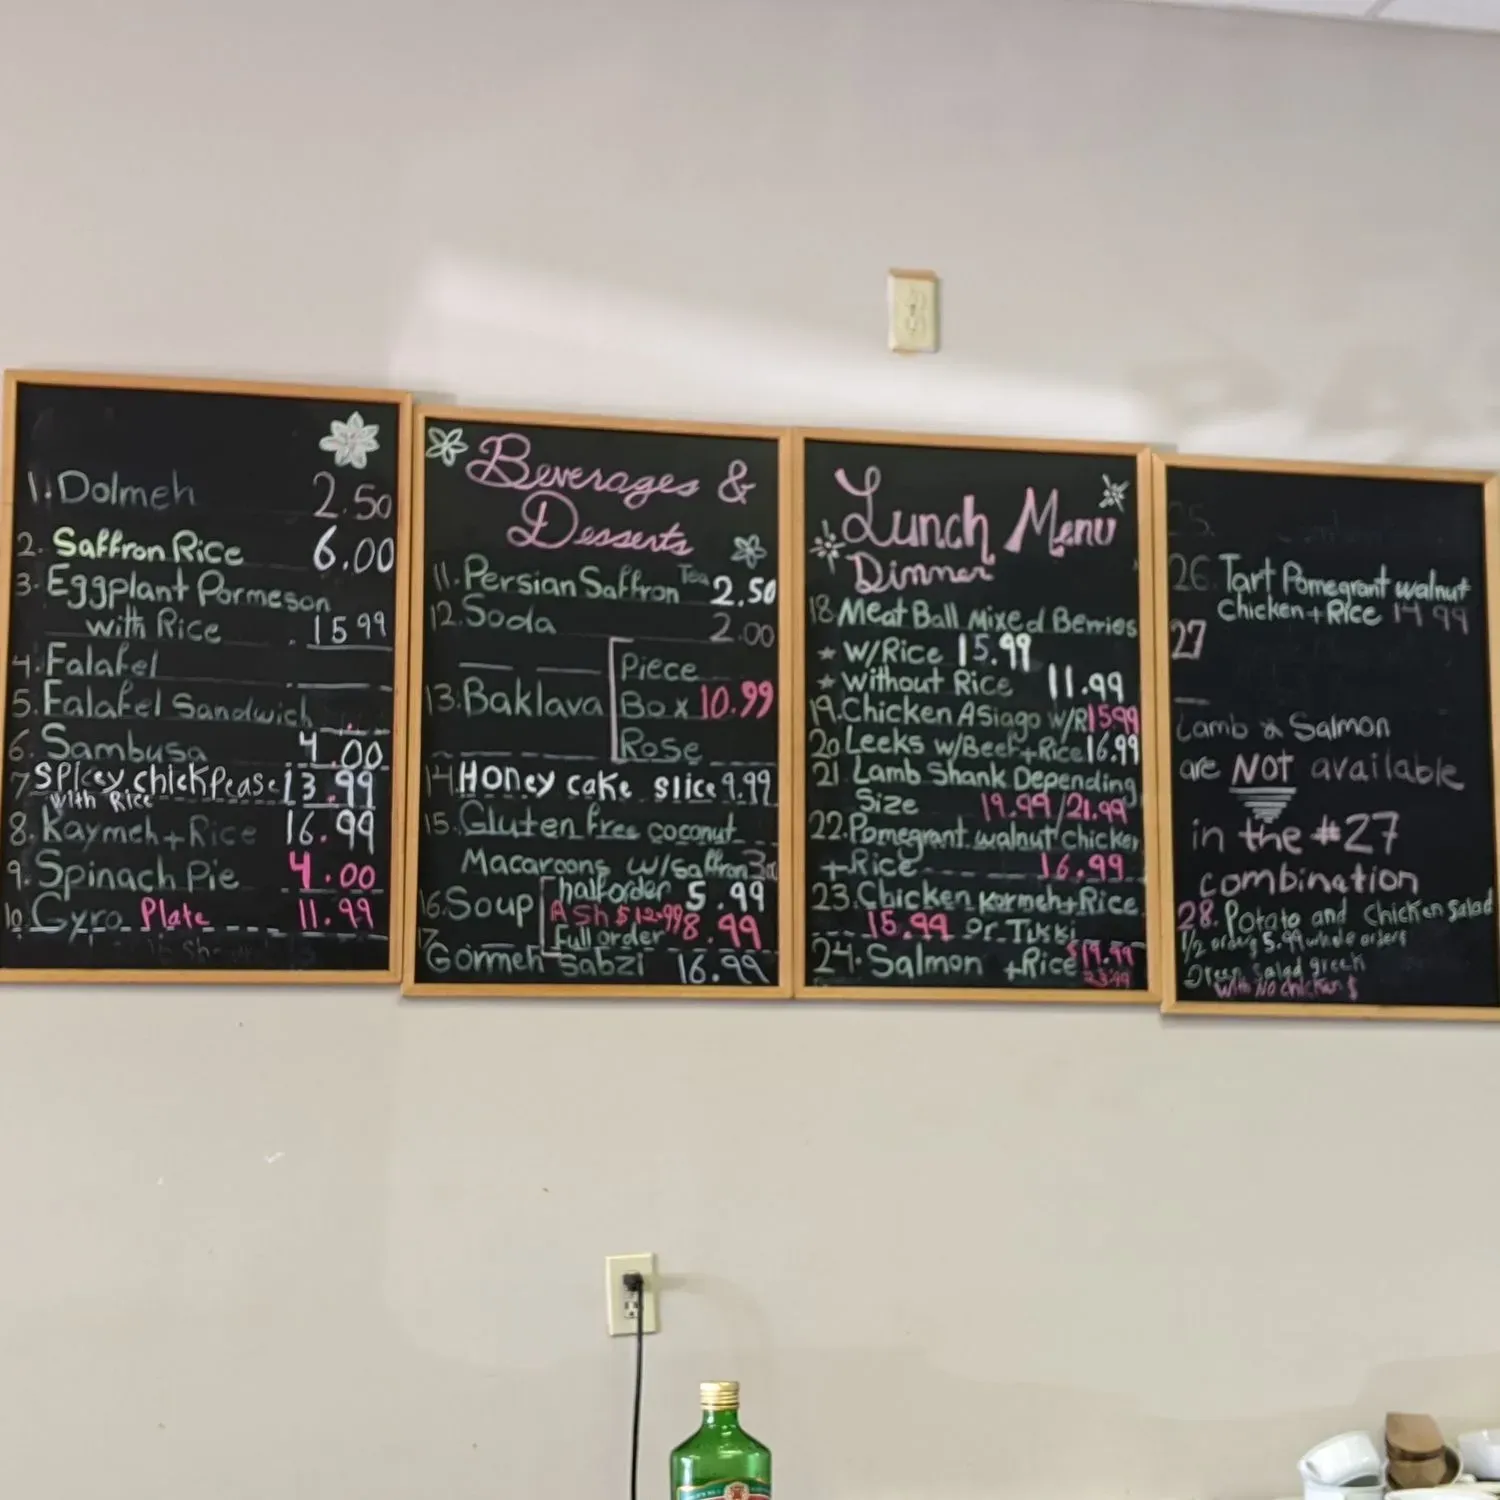 1. Dolmeh 2.50
2. Saffron Rice 6.00
3. Eggplant Parmeson
with Rice 15.99
4. Falafel
5. Falafel Sandwich
6. Sambusa 4.00
7 Spicey chickpease 13.99
with Rice
8. Kaymeh + Rice 16.99
9. Spinach Pie 4.00
10. Gyro Plate 11.99
Beverages &
Desserts
11. Persian Saffron Tea 2.50
12. Soda 2.00
Piece
13. Baklava Box 10.99
Rose
14. Honey cake slice 9.99
15. Gluten free coconut
Macaroons w/saffron
16. Soup half order 5.99
Ash $12.99 8.99
Full order
17
Gormeh Sabzi 16.99
Lunch Menu
Dinner
18. Meat Ball Mixed Berries
* w/Rice 15.99
* without Rice 11.99
19. Chicken Asiago w/R 15.99
20 Leeks w/Beef + Rice 16.99
21 Lamb Shank Depending
Size 19.99/21.99
22. Pomegrant walnut chicken
+ Rice 16.99
23. Chicken Kormeh + Rice
15.99 Or. Tikki
24. Salmon + Rice $19.99
23.99
25.
26. Tart Pomegrant walnut
Chicken + Rice 14.99
27
Lamb & Salmon
are NOT available
in the #27
combination
28. Potato and Chicken Salad
1/2 order 5.99 whole orders
Green Salad greek
With No chicken $